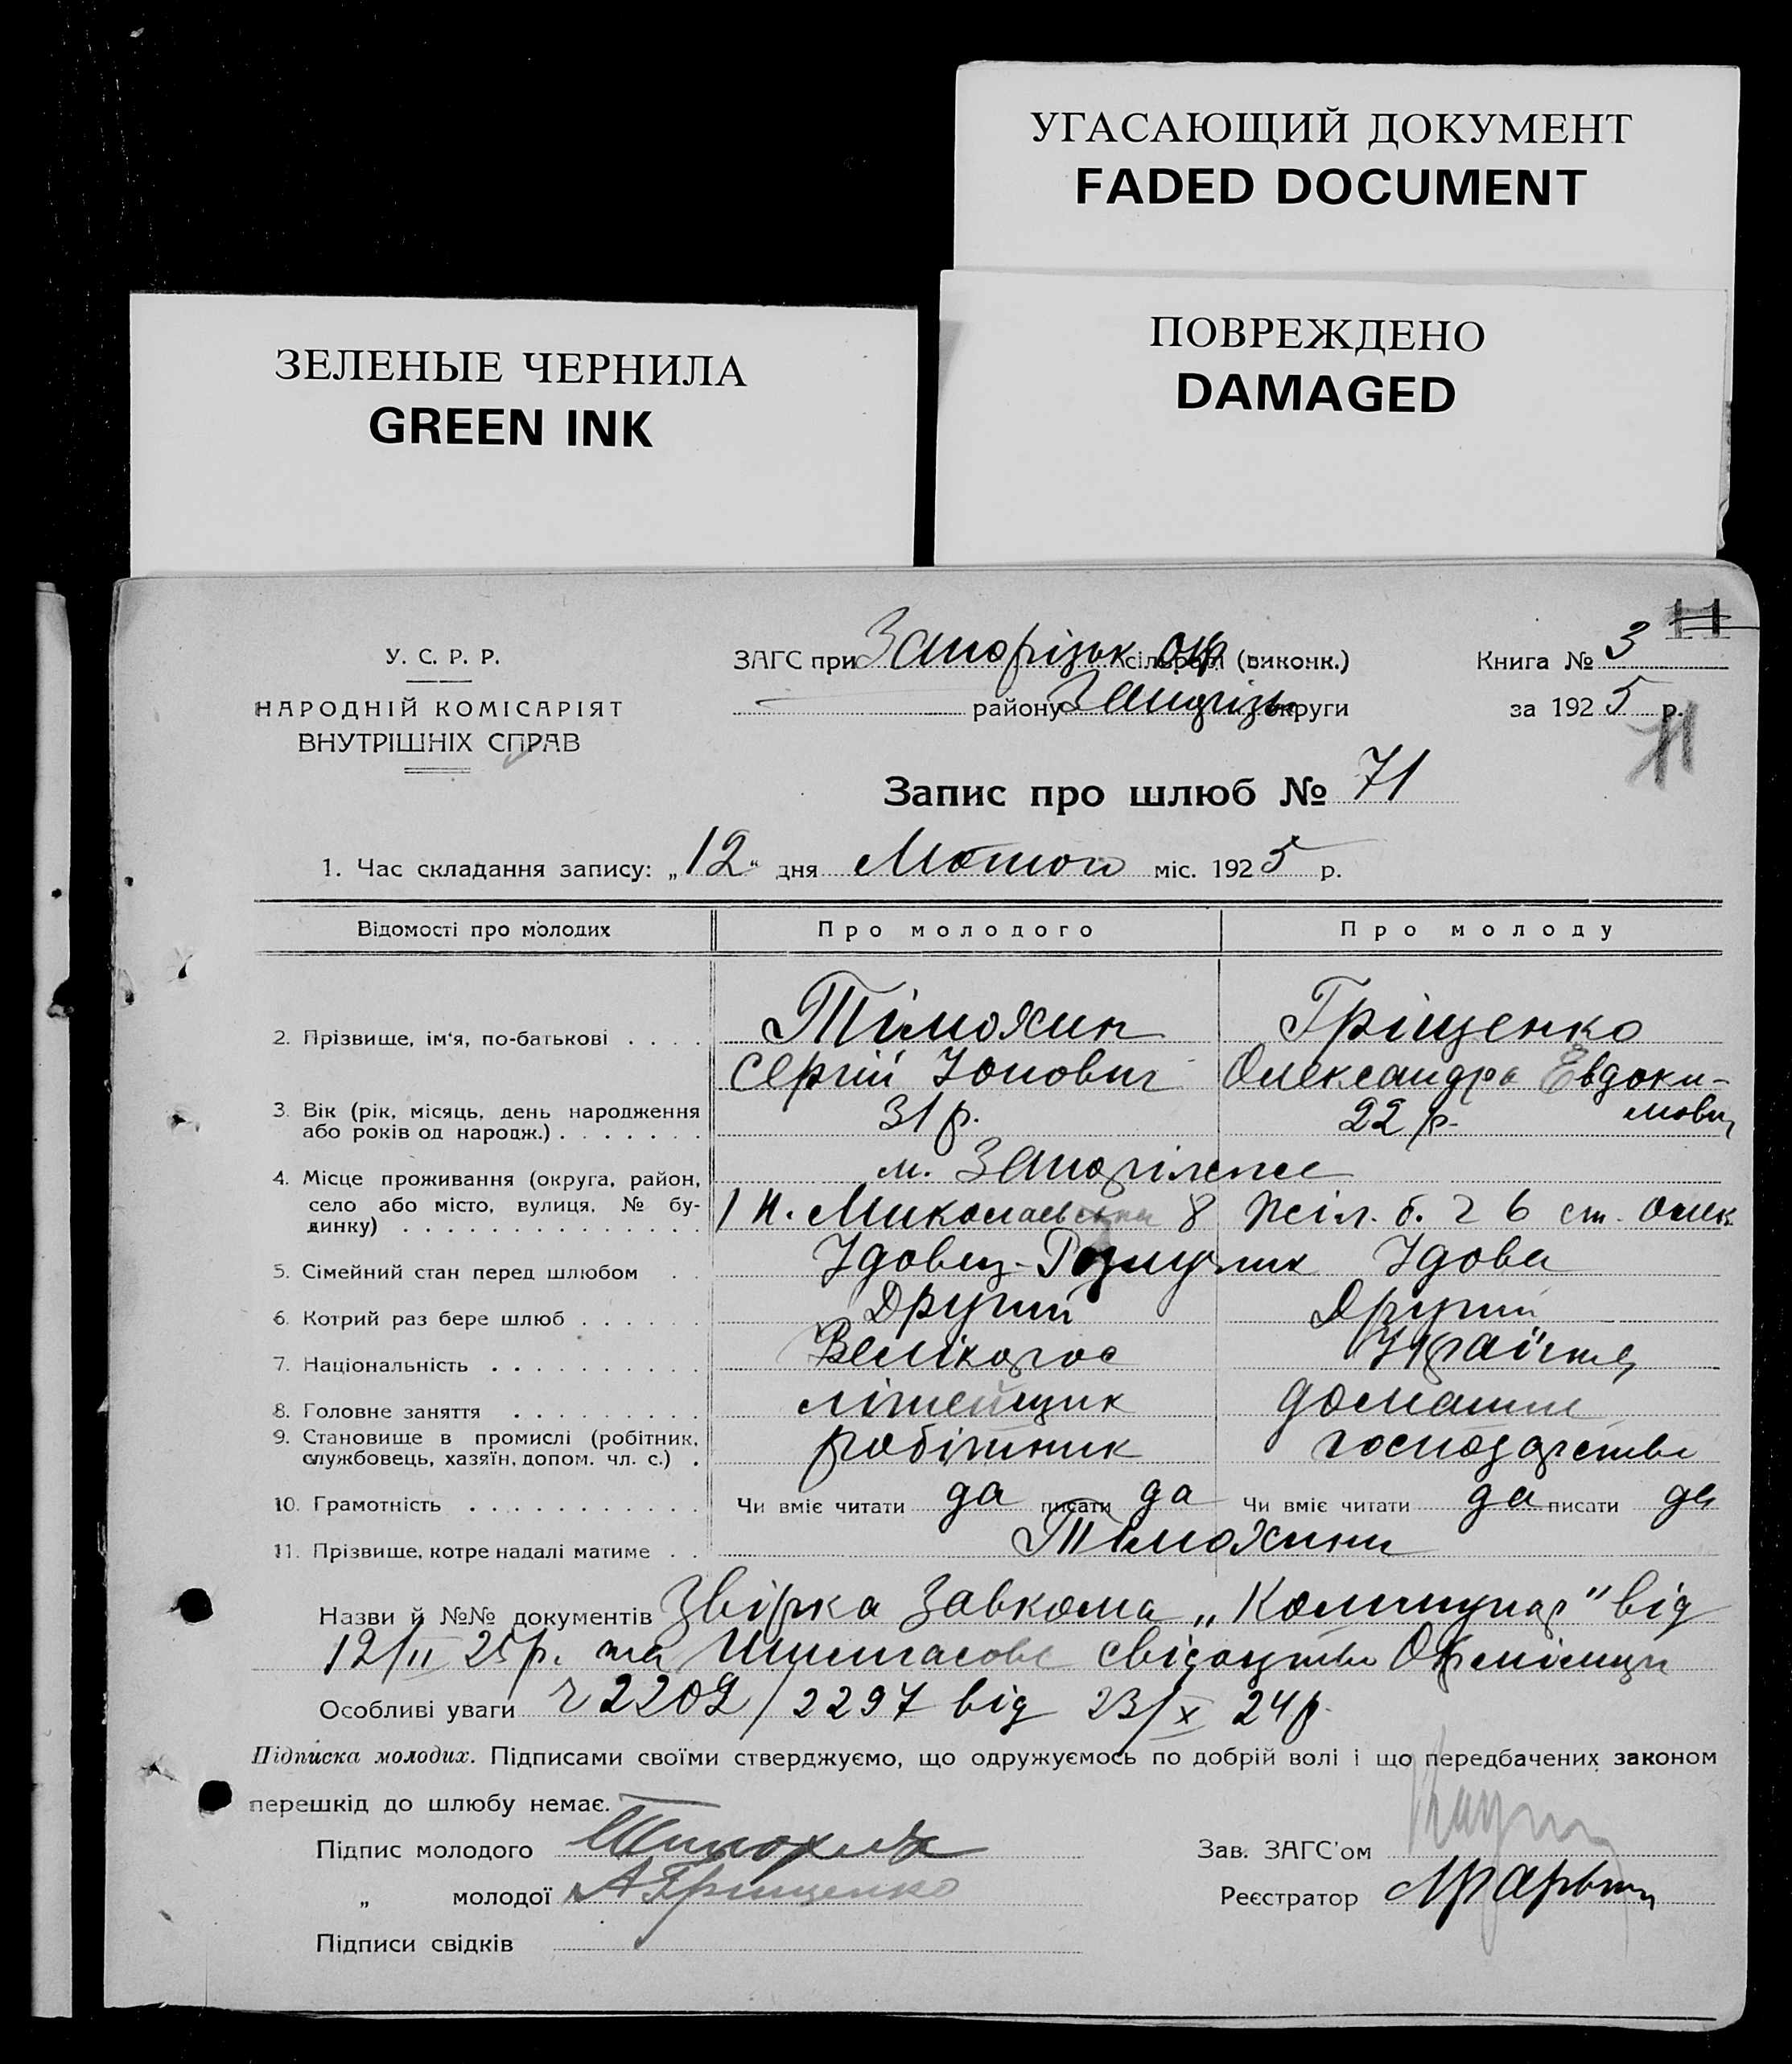 УГАСАЮЩИЙ ДОКУМЕНТ
FADED DOCUMENT
ПОВРЕЖДЕНО
DAMAGED
ЗЕЛЕНЫЕ ЧЕРНИЛА
GREEN INK
У. С. Р. Р.
НАРОДНІЙ КОМІСАРІЯТ
ВНУТРІШНІХ СПРАВ
ЗАГС при Запорізьк окр сільраді (виконк.)
району Запорізьк округи
Книга № 3
за 1925 р.
71
Запис про шлюб № 71
1. Час складання запису: „12" дня Лютого міс. 1925 р.
Відомості про молодих Про молодого Про молоду
2. Прізвище, ім'я, по-батькові Тімохин Гріщенко
Сергій Іонович Олександра Евдоки-
мовн
3. Вік (рік, місяць, день народження 31 р. 22 р.
або років од народж.)
4. Місце проживання (округа, район, м. Запоріжжє
село або місто, вулиця, № бу- Миколаевська 8 Жіл. б. 26 ст. Олек
динку)
5. Сімейний стан перед шлюбом Удовец- Удова
6. Котрий раз бере шлюб Другий Другий
7. Національність Велікорос Україн
8. Головне заняття літейщик домашне
9. Становище в промислі (робітник, робітник господарство
службовець, хазяїн, допом. чл. с.)
10. Грамотність Чи вміє читати да писати да Чи вміє читати да писати да
11. Прізвище, котре надалі матиме Тімохини
Назви й №№ документів Звірка Завкома „Коммунар" від
12/II 25 р. та свідоцтво Окрміліции
Особливі уваги 2202/2297 від 23/X 24 р.
Підписка молодих. Підписами своїми стверджуємо, що одружуємось по добрій волі і що передбачених законом
перешкід до шлюбу немає.
Підпис молодого Тимохин
„ молодої А Грищенко
Підписи свідків
Зав. ЗАГС'ом
Реєстратор